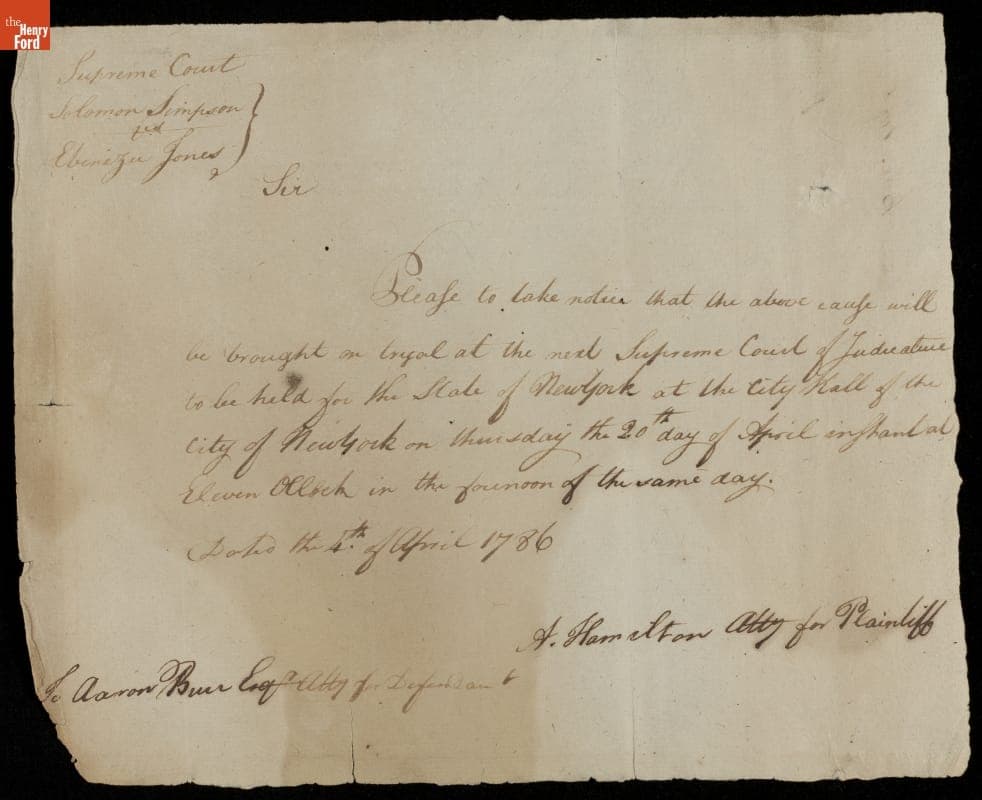 the
Henry
Ford
Supreme Court
Solomon Simpson
Ebenezer Jones
Sir
Please to take notice that the above cause will
be brought on tryal at the next Supreme Court of Judicature
to be held for the State of NewYork at the City Hall of the
City of NewYork on thursday the 20th day of April instant at
Eleven OClock in the forenoon of the same day.
Dated the 4th of April 1786
A. Hamilton Atty for Plaintiff
To Aaron Burr Esqr Atty for Defendant